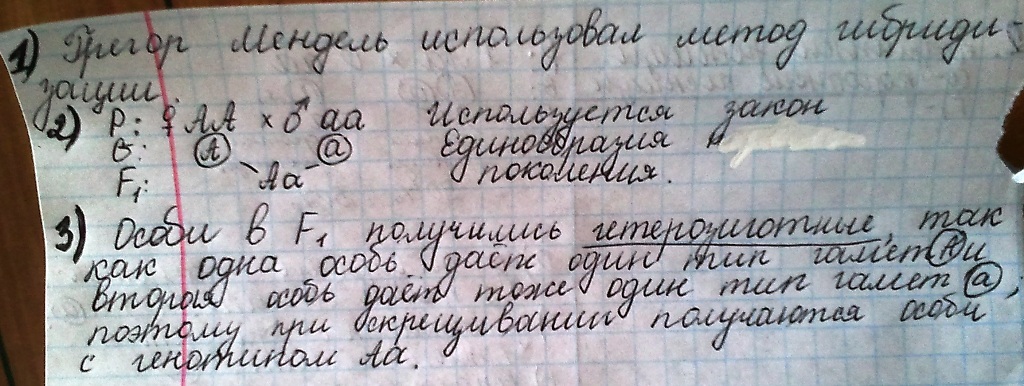 1) Грегор Мендель использовал метод гибриди-
зации.
2) P: ♀ AA × ♂ aa Используется закон
G: A a Единообразия
F₁: Aa поколения.
3) Особи в F₁ получились гетерозиготные, так
как одна особь даёт один тип гамет A и
вторая особь даёт тоже один тип гамет a,
поэтому при скрещивании получаются особи
с генотипом Aa.